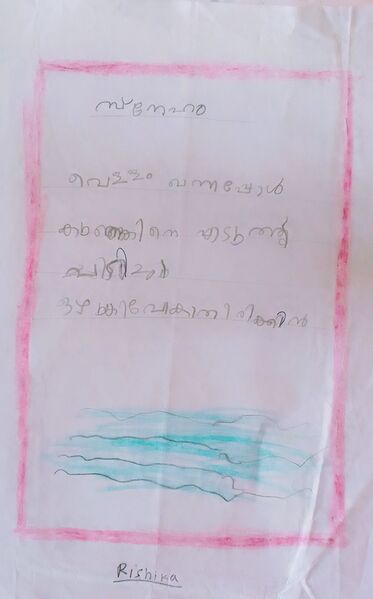 സ്നേഹം
വെള്ളം വന്നപ്പോൾ
കുഞ്ഞിനെ എടുത്തു
ഒഴുകിപോകാതിരിക്കാൻ
Rishika